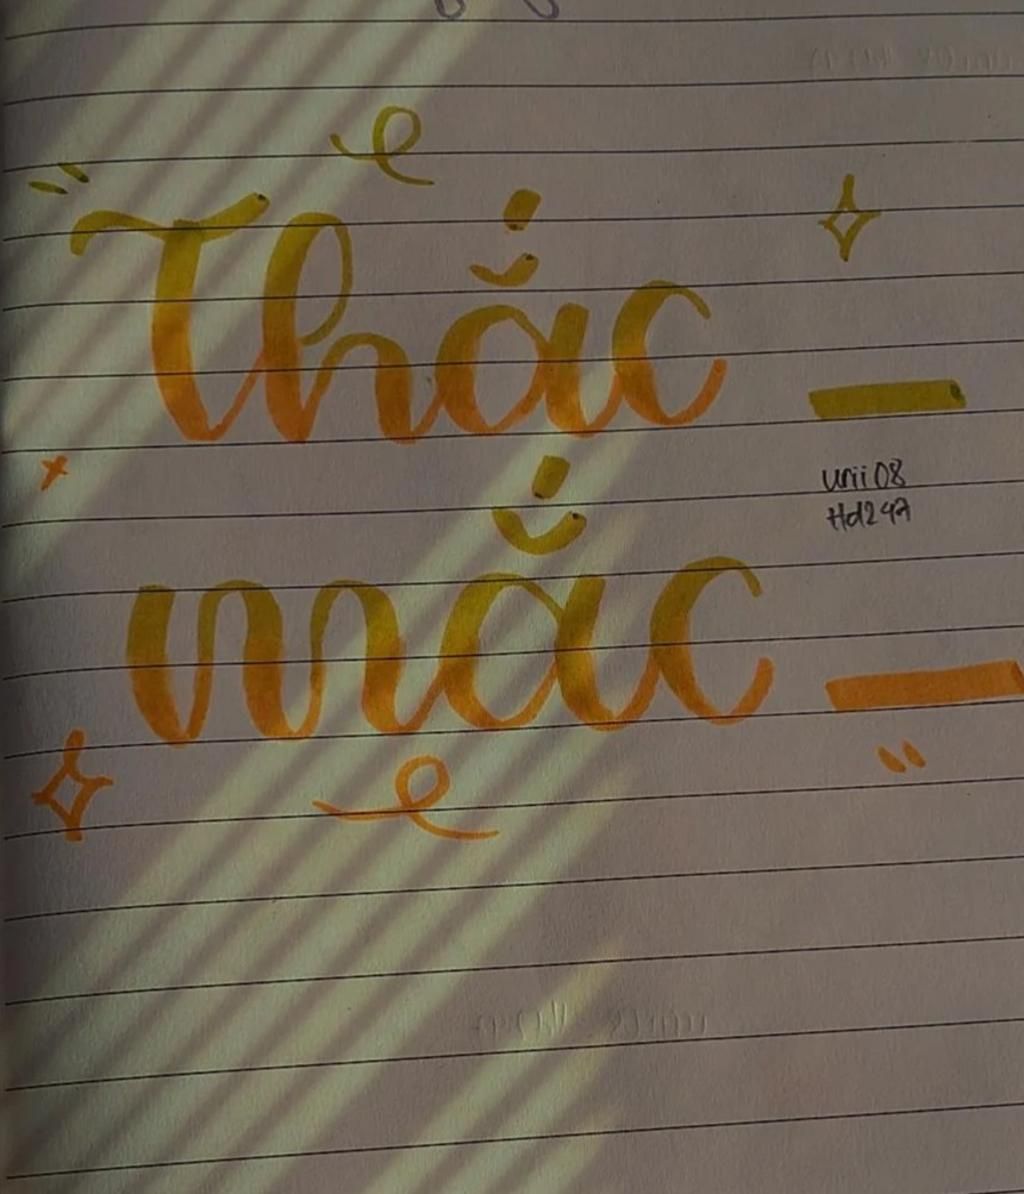 Thắc
mắc
unii08
Hd247